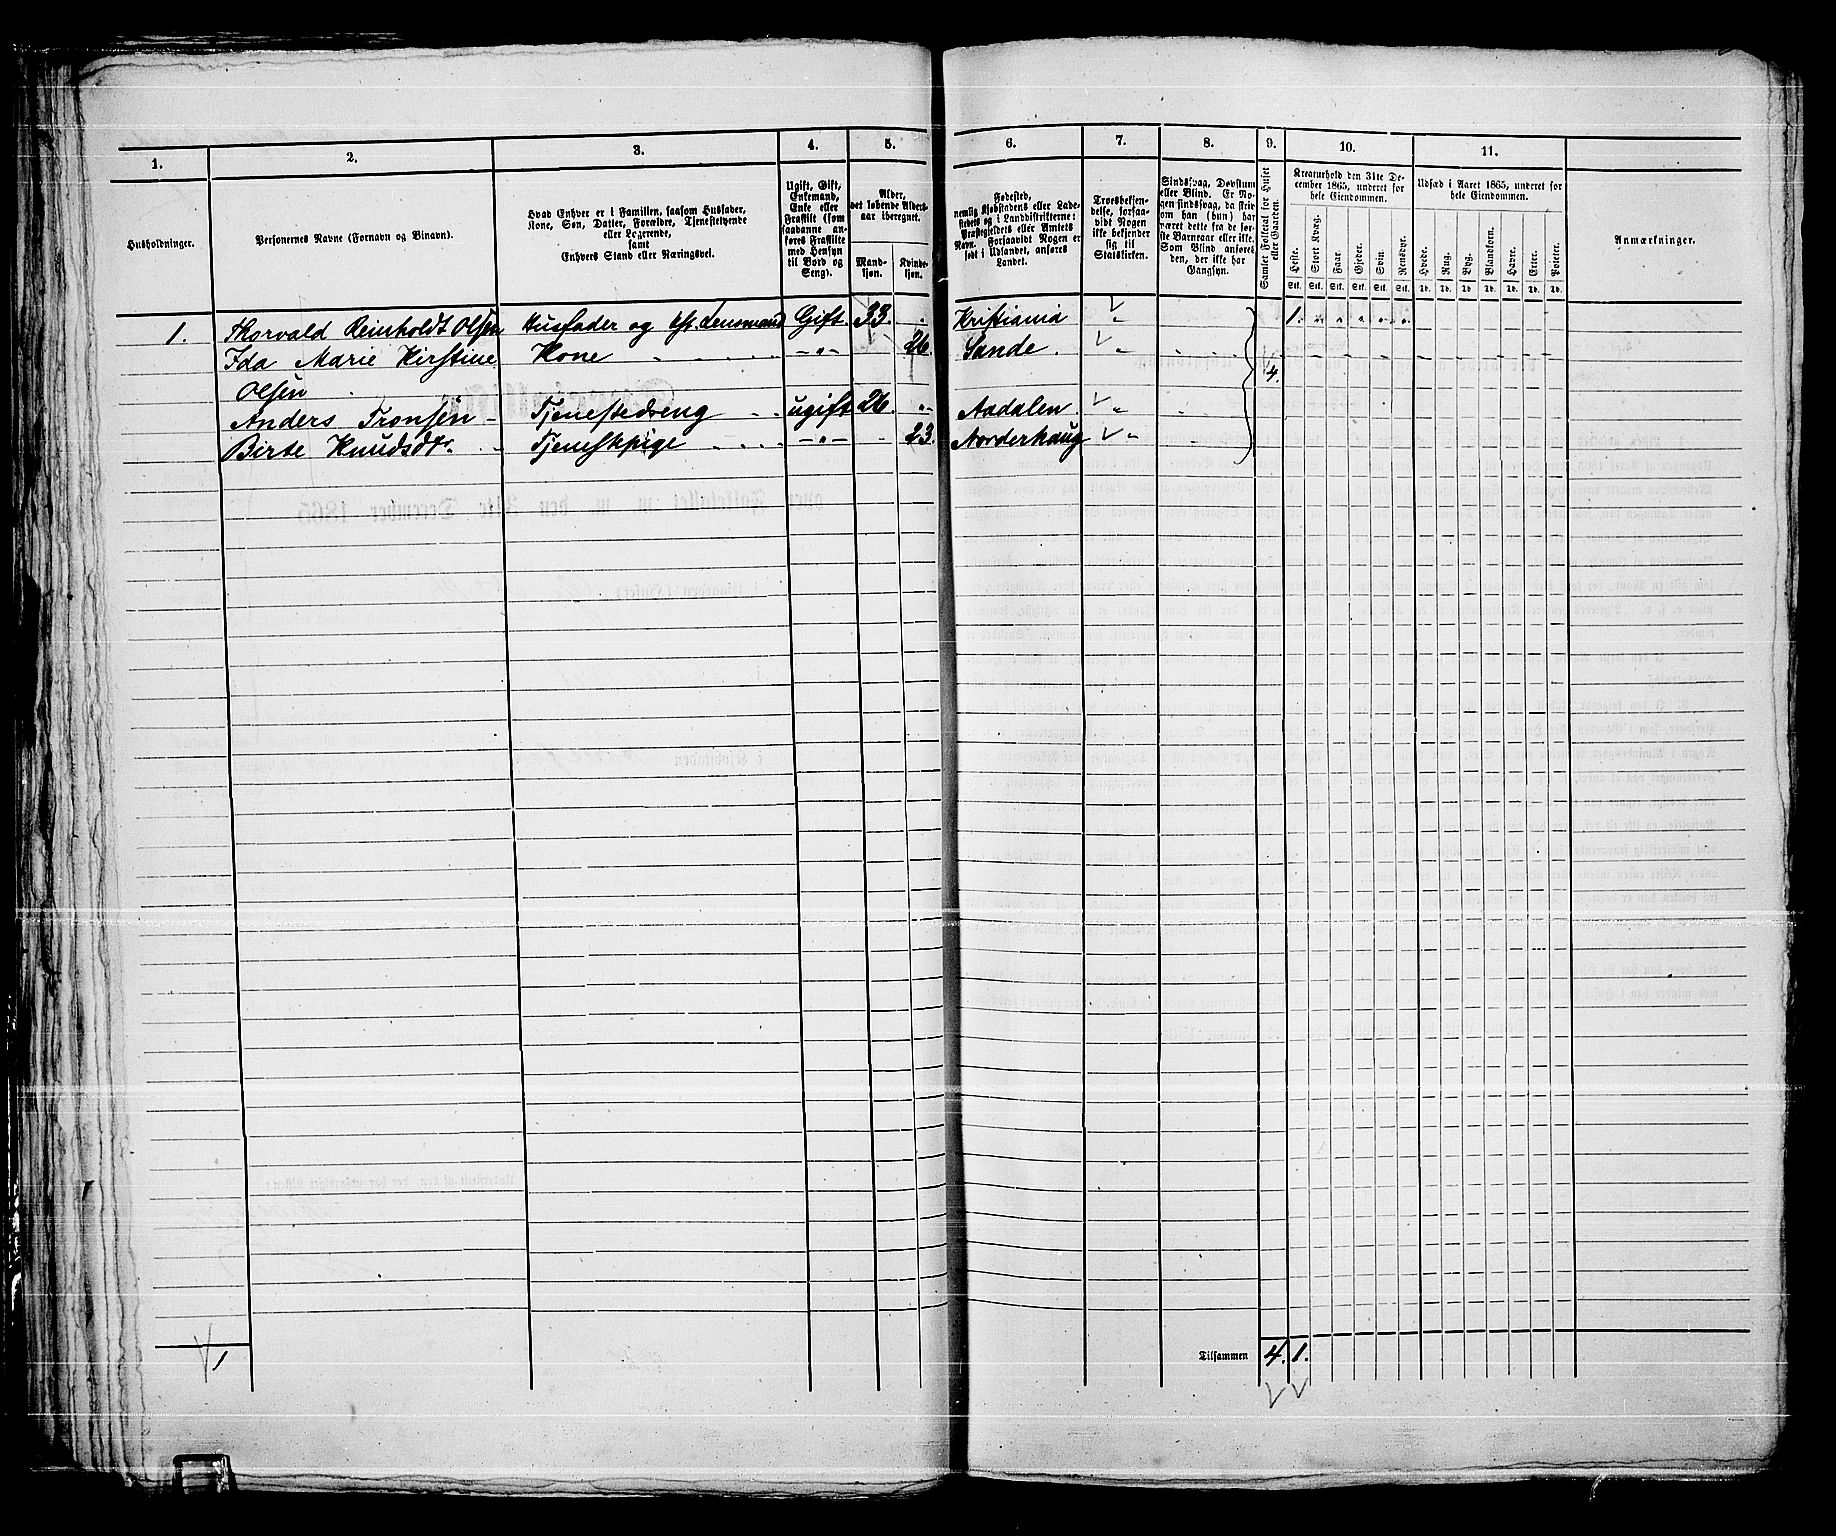 1. 2. 3. 4. 5. 6. 7. 8. 9. 10. 11.
Husholdninger.
Personernes Navne (Fornavn og Binavn).
Hvad Enhver er i Familien, saasom Husfader,
Kone, Søn, Datter, Forældre, Tjenestetyende
eller Logerende,
samt
Enhvers Stand eller Næringsvei.
Ugift, Gift,
Enkemand,
Enke eller
Fraskilt (som
saadanne an-
føres Fraskilte
med Hensyn
til Bord og
Seng).
Alder,
det løbende Alders-
aar iberegnet.
Mand-
kjøn.
Kvinde-
kjøn.
Fødested,
nemlig Kjøbstadens eller Lade-
stedets og i Landdistrikterne:
Præstegjeldets eller Amtets
Navn. Forsaavidt Nogen er
født i Udlandet, anføres
Landet.
Troesbekjen-
delse, forsaa-
vidt Nogen
ikke bekjender
sig til
Statskirken.
Sindssvag, Døvstum
eller Blind. Er No-
gen sindssvag, da skriv
om han (hun) har
været dette fra de før-
ste Barneaar eller ikke.
Som Blind anføres
den, der ikke har
Gangsyn.
Samlet Folketal for Huset
eller Gaarden.
Kreaturhold den 31te De-
cember 1865, underet for
hele Eiendommen.
Heste. Stort Kvæg. Faar. Gjeder. Svin. Rensdyr.
Stk. Stk. Stk. Stk. Stk. Stk.
Udsæd i Aaret 1865, underet for
hele Eiendommen.
Hvede. Rug. Byg. Blandkorn. Havre. Erter. Poteter.
Td. Td. Td. Td. Td. Td. Td.
Anmærkninger.
1. Thorvald Reinholdt Olsen Husfader og Lensmand Gift. 33. " Kristiania " 1. " " " " "
Ida Marie Kirstine Kone -"- 26. Sande. " 4.
Olsen
Anders Tronsen - Tjenestedreng ugift 26. " Aadalen. "
Birte Knudsdtr. Tjenestpige -"- 23. Norderhaug "
1 Tilsammen 4. 1.